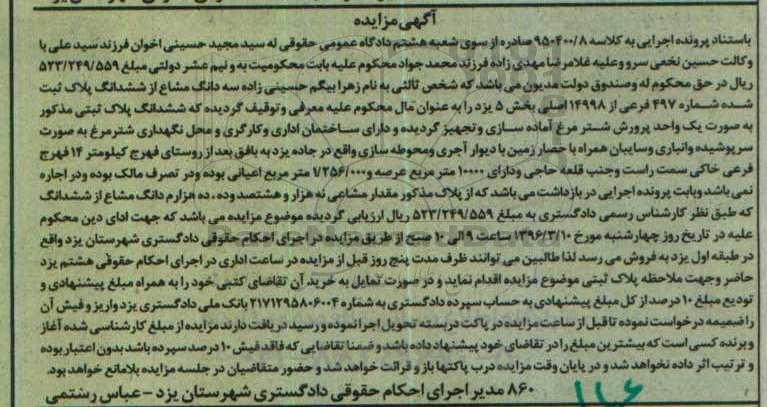 آگهی مزایده
باستناد پرونده اجرایی به کلاسه ۹۵۰۴۰۰/۸ صادره از سوی شعبه هشتم دادگاه عمومی حقوقی له سید مجید حسینی اخوان فرزند سید علی با
وکالت حسین نخعی سرو وعلیه غلامرضا مهدی زاده فرزند محمد جواد محکوم علیه بابت محکومیت به و نیم عشر دولتی مبلغ ۵۲۳/۲۴۹/۵۵۹
ریال در حق محکوم له وصندوق دولت مدیون می باشد که شخص ثالثی به نام زهرا بیگم حسینی زاده سه دانگ مشاع از ششدانگ پلاک ثبت
شده شماره ۴۹۷ فرعی از ۱۴۹۹۸ اصلی بخش ۵ یزد را به عنوان مال محکوم علیه معرفی وتوقیف گردیده که ششدانگ پلاک ثبتی مذکور
به صورت یک واحد پرورش شتر مرغ آماده سازی وتجهیز گردیده و دارای ساختمان اداری وکارگری و محل نگهداری شترمرغ به صورت
سرپوشیده وانباری وسایبان همراه با حصار زمین با دیوار آجری ومحوطه سازی واقع در جاده یزد به بافق بعد از روستای فهرج کیلومتر ۱۴ فهرج
فرعی خاکی سمت راست وجنب قلعه حاجی ودارای ۱۰۰۰۰ متر مربع عرصه و۱/۲۵۶/۰۰۰ متر مربع اعیانی بوده ودر تصرف مالک بوده ودر اجاره
نمی باشد وبابت پرونده اجرایی در بازداشت می باشد که از پلاک مذکور مقدار مشاعی نه هزار و هشتصد وده، ده هزارم دانگ مشاع از ششدانگ
که طبق نظر کارشناس رسمی دادگستری به مبلغ ۵۲۳/۲۴۹/۵۵۹ ریال ارزیابی گردیده موضوع مزایده می باشد که جهت ادای دین محکوم
علیه در تاریخ روز چهارشنبه مورخ ۱۳۹۶/۳/۱۰ ساعت ۹ الی ۱۰ صبح از طریق مزایده در اجرای احکام حقوقی دادگستری شهرستان یزد واقع
در طبقه اول یزد به فروش می رسد لذا طالبین می توانند ظرف مدت پنج روز قبل از مزایده در ساعت اداری در اجرای احکام حقوقی هشتم یزد
حاضر وجهت ملاحظه پلاک ثبتی موضوع مزایده اقدام نماید و در صورت تمایل به خرید آن تقاضای کتبی خود را به همراه مبلغ پیشنهادی و
تودیع مبلغ ۱۰ درصد از کل مبلغ پیشنهادی به حساب سپرده دادگستری به شماره ۲۱۷۱۲۹۵۸۰۶۰۰۴ بانک ملی دادگستری یزد واریز و فیش آن
را ضمیمه درخواست نموده تا قبل از ساعت مزایده در پاکت دربسته تحویل اجرا نموده و رسید دریافت دارند مزایده از مبلغ کارشناسی شده آغاز
و برنده کسی است که بیشترین مبلغ را در تقاضای خود پیشنهاد داده باشد و ضمنا تقاضایی که فاقد فیش ۱۰ درصد سپرده باشد بدون اعتبار بوده
و ترتیب اثر داده نخواهد شد و در پایان وقت مزایده درب پاکتها باز و قرائت خواهد شد و حضور متقاضیان در جلسه مزایده بلامانع خواهد بود.
۸۶۰ مدیر اجرای احکام حقوقی دادگستری شهرستان یزد - عباس رستمی